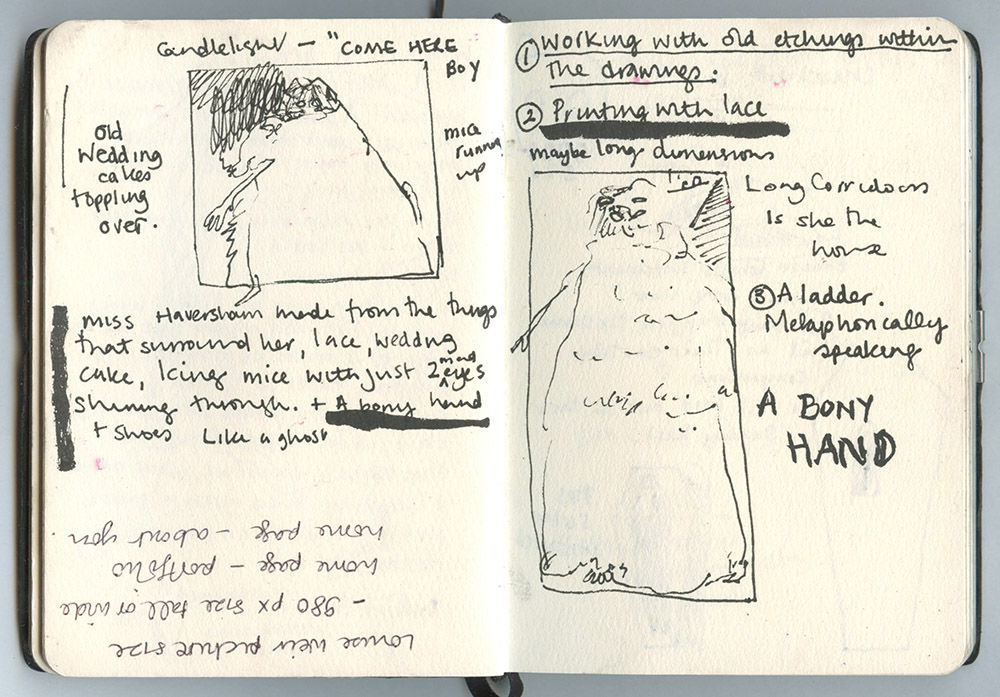 Candlelight – "COME HERE
BOY
Old
Wedding
cakes
toppling
over.
mice
running
up
miss Haversham made from the things
that surround her, lace, wedding
cake, Icing mice with just 2 mad eyes
shining through. + A bony hand
+ shoes Like a ghost
Louise weir picture size
- 980 px size tall or wide
home page - portfolio
home page - about you.
① Working with old etchings within
The drawings.
② Printing with lace
maybe long dimensions
Long Corridoors
Is she the
house
③ A ladder.
Metaphorically
speaking
A BONY
HAND